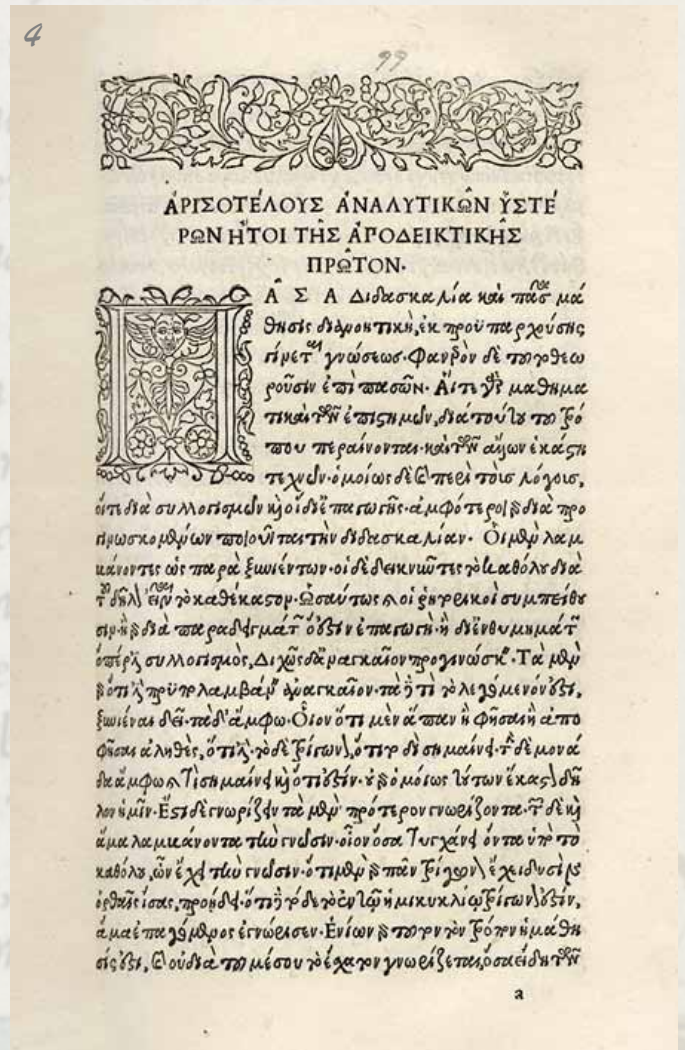 4
99
ἈΡΙΣΟΤΈΛΟΥΣ ἈΝΑΛΥΤΙΚΩ͂Ν ὙΣΤΕ
ΡΩΝ ἬΤΟΙ ΤΗ͂Σ ἈΠΟΔΕΙΚΤΙΚΗ͂Σ
ΠΡΩ͂ΤΟΝ·
ΠΑ͂ΣΑ Διδασκαλία καὶ πᾶσα μά
θησις διανοητικὴ, ἐκ προϋπαρχούσης
γίνεται γνώσεως· Φανερὸν δὲ τοῦτο θεω
ροῦσιν ἐπὶ πασῶν· Αἵ τε γὰρ μαθημα
τικαὶ τῶν ἐπιστημῶν, διὰ τούτου τοῦ τρό
που περαίνονται· καὶ τῶν ἄλλων ἑκάστη
τεχνῶν· ὁμοίως δὲ καὶ περὶ τοὺς λόγους,
οἵ τε διὰ συλλογισμῶν καὶ οἱ δι' ἐπαγωγῆς· ἀμφότεροι γὰρ διὰ προ
γινωσκομένων ποιοῦνται τὴν διδασκαλίαν· Οἱ μὲν λαμ
βάνοντες ὡς παρὰ ξυνιέντων· οἱ δὲ δεικνύντες τὸ καθόλου διὰ
τοῦ δῆλον εἶναι τὸ καθέκαστον· Ὡσαύτως δὲ καὶ οἱ ῥητορικοὶ συμπείθου
σιν· ἢ γὰρ διὰ παραδειγμάτων ὅ ἐστιν ἐπαγωγὴ· ἢ δι' ἐνθυμημάτων
ὅπερ ἐστὶ συλλογισμὸς, Διχῶς δ' ἀναγκαῖον προγινώσκειν· Τὰ μὲν
γὰρ ὅτι ἔστι προϋπολαμβάνειν ἀναγκαῖον· τὰ δὲ τί τὸ λεγόμενόν ἐστι,
ξυνιέναι δεῖ· τὰ δ' ἄμφω· Οἷον ὅτι μὲν ἅπαν ἢ φῆσαι ἢ ἀπο
φῆσαι ἀληθὲς, ὅτι ἔστι· τὸ δὲ τρίγωνον, ὅτι τοδὶ σημαίνει· τὴν δὲ μονά
δα ἄμφω καὶ τί σημαίνει καὶ ὅτι ἔστιν· οὐ γὰρ ὁμοίως τούτων ἕκαστον δῆ
λον ἡμῖν· Ἔστι δὲ γνωρίζειν τὰ μὲν πρότερον γνωρίζοντα· τῶν δὲ καὶ
ἅμα λαμβάνοντα τὴν γνῶσιν· οἷον ὅσα τυγχάνει ὄντα ὑπὸ τὸ
καθόλου, ὧν ἔχει τὴν γνῶσιν· ὅτι μὲν γὰρ πᾶν τρίγωνον ἔχει δυσὶν
ὀρθαῖς ἴσας, προῄδει· ὅτι δὲ τόδε τὸ ἐν τῷ ἡμικυκλίῳ τρίγωνόν ἐστιν,
ἅμα ἐπαγόμενος ἐγνώρισεν· Ἐνίων γὰρ τοῦτον τὸν τρόπον ἡ μάθη
σίς ἐστι, καὶ οὐ διὰ τοῦ μέσου τὸ ἔσχατον γνωρίζεται, ὅσα ἤδη τῶν
a